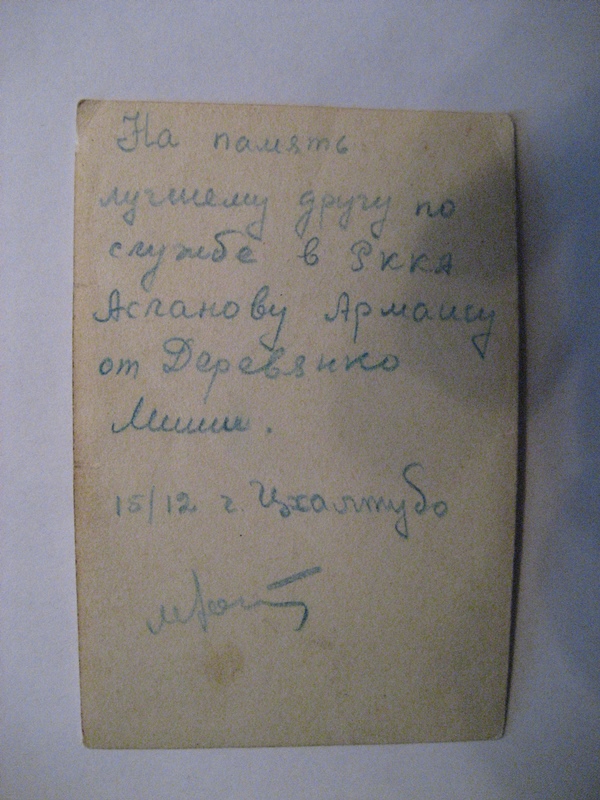 На память
лучшему другу по
службе в РККА
Асланову Армаису
от Деревянко
Миши.
15/12 г. Цхалтубо